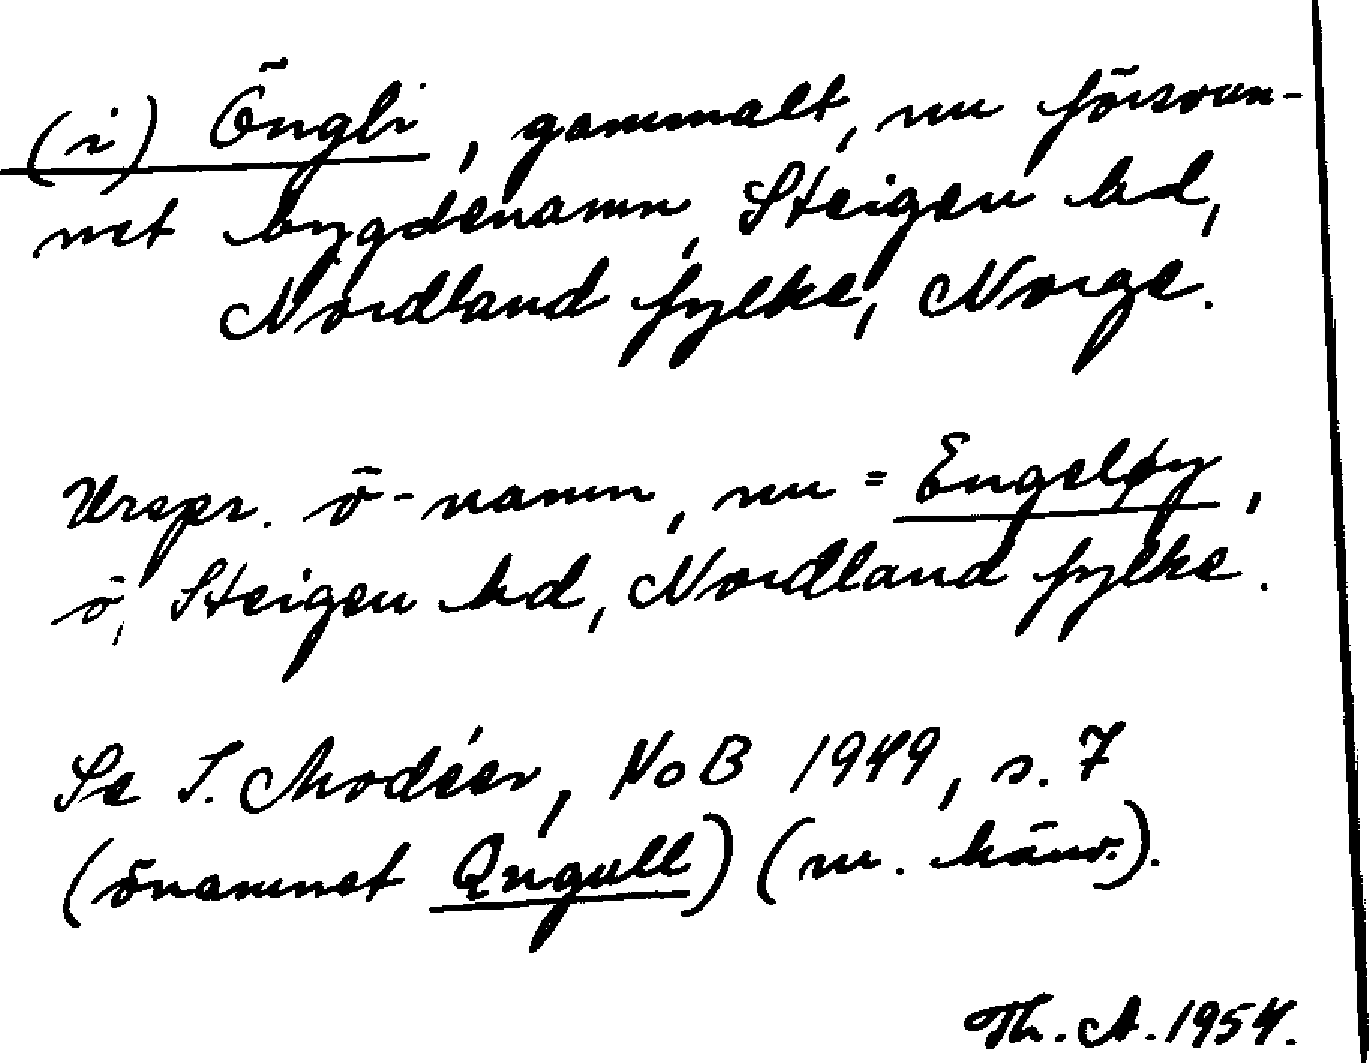 (i) Öngli, gammalt, nu försvun-
net bygdenamn, Steigen hd,
Nordland fylke, Norge.
Urspr. ö-namn, nu = Engeløy,
ö, Steigen hd, Nordland fylke.
Se I. Modéer, NoB 1949, s. 7
(önamnet Ǫngull) (m. hänv.).
Th. A. 1954.